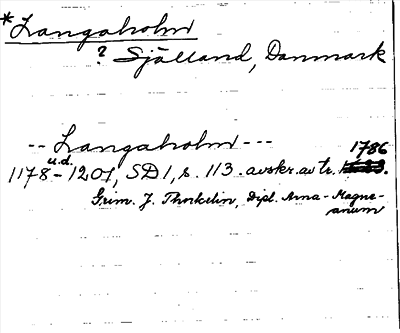 *Langaholm
? Sjålland, Danmark
-- Langaholm ---
u.d. 1786
1178-1201, SD1, s. 113. avskr. av tr.
Grim. J. Thorkelin, Dipl. Arna-Magne-
anum